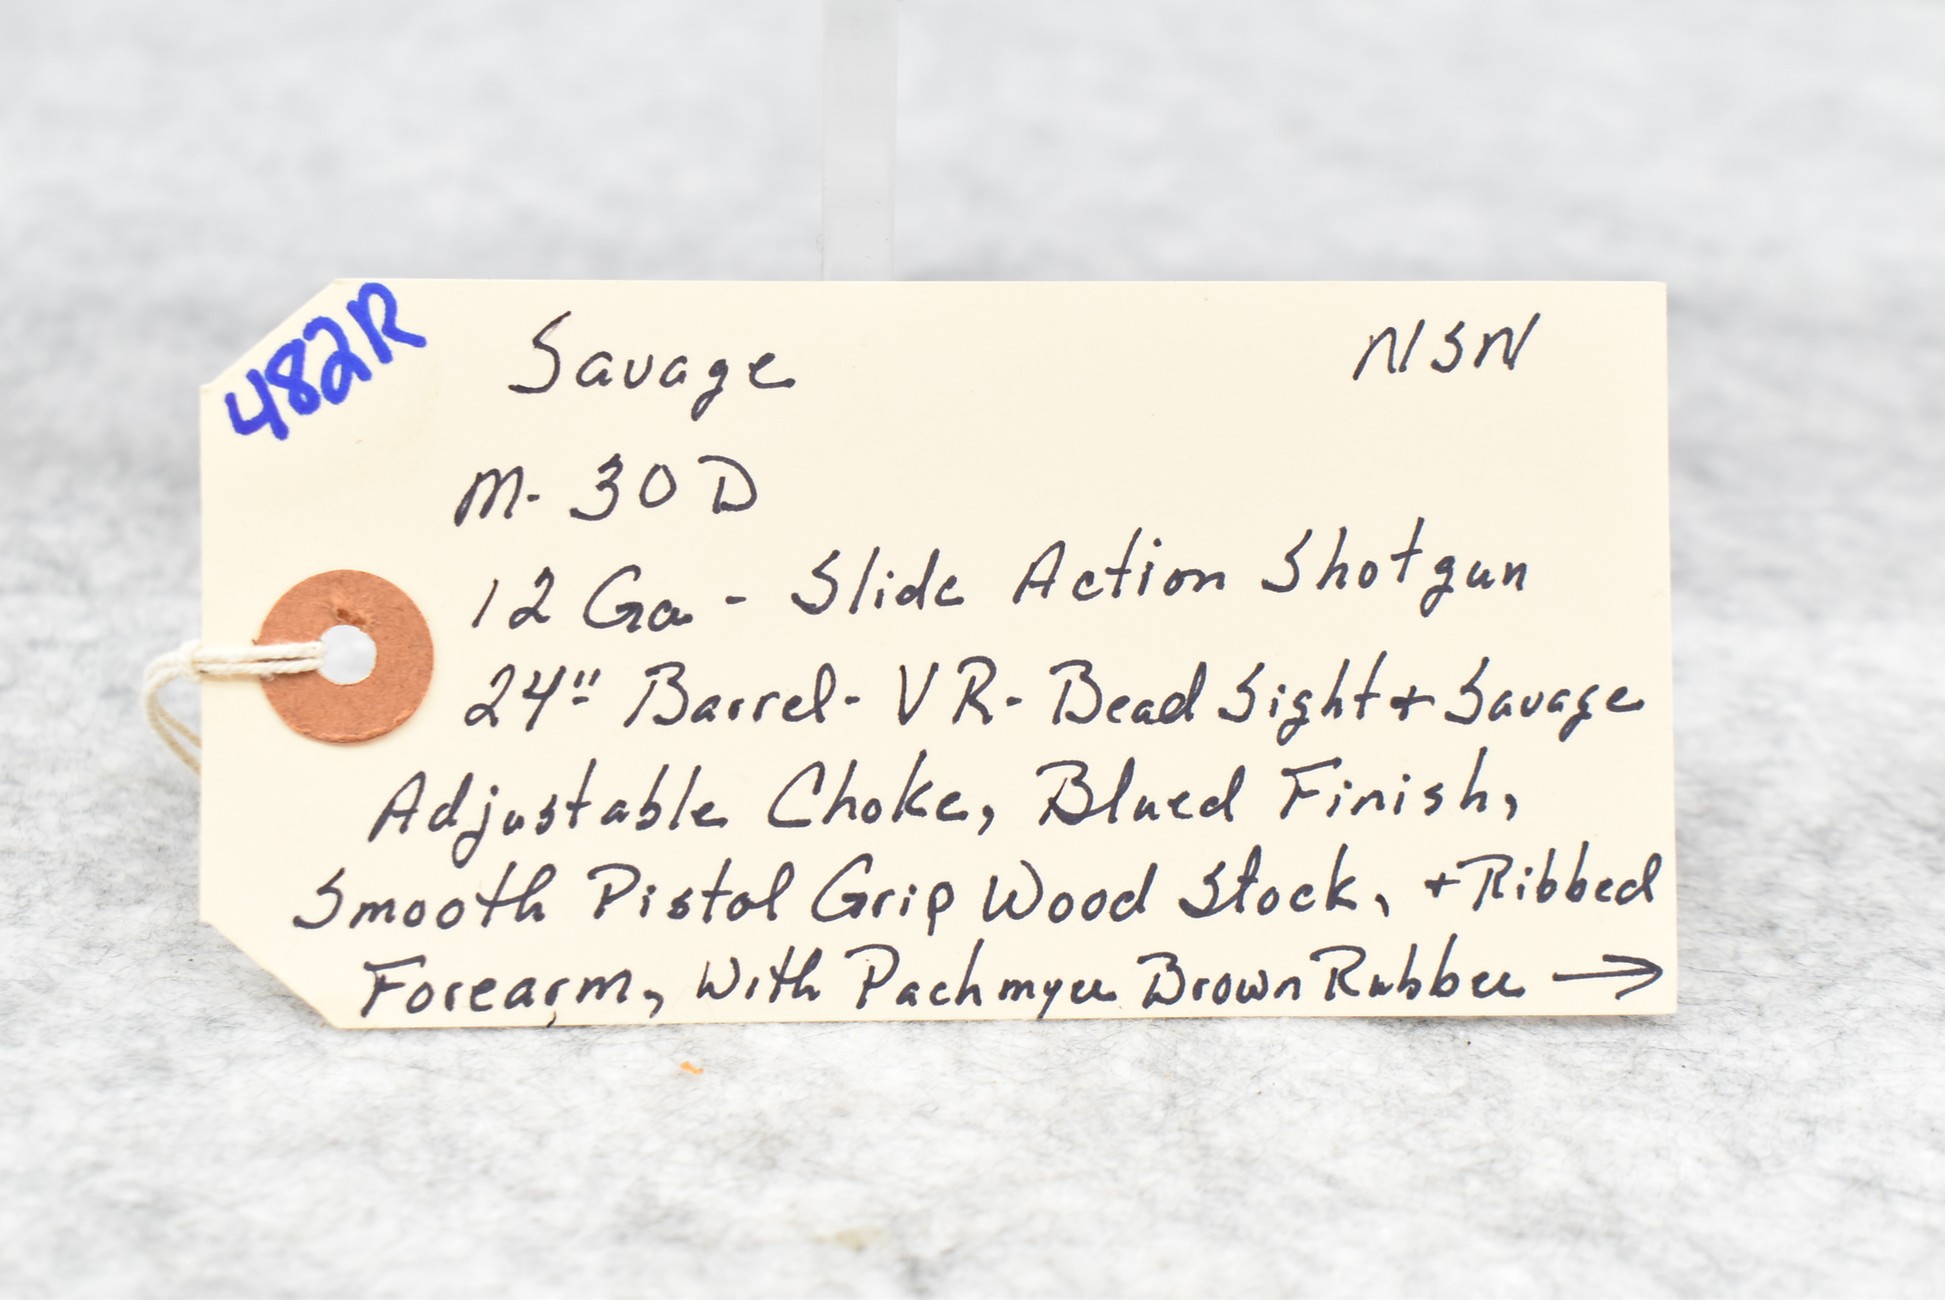 482R
Savage NSN
M- 30D
12 Ga - Slide Action Shotgun
24" Barrel- VR- Bead Sight + Savage
Adjustable Choke, Blued Finish,
Smooth Pistol Grip Wood Stock, + Ribbed
Forearm, With Pachmyer Brown Rubber →